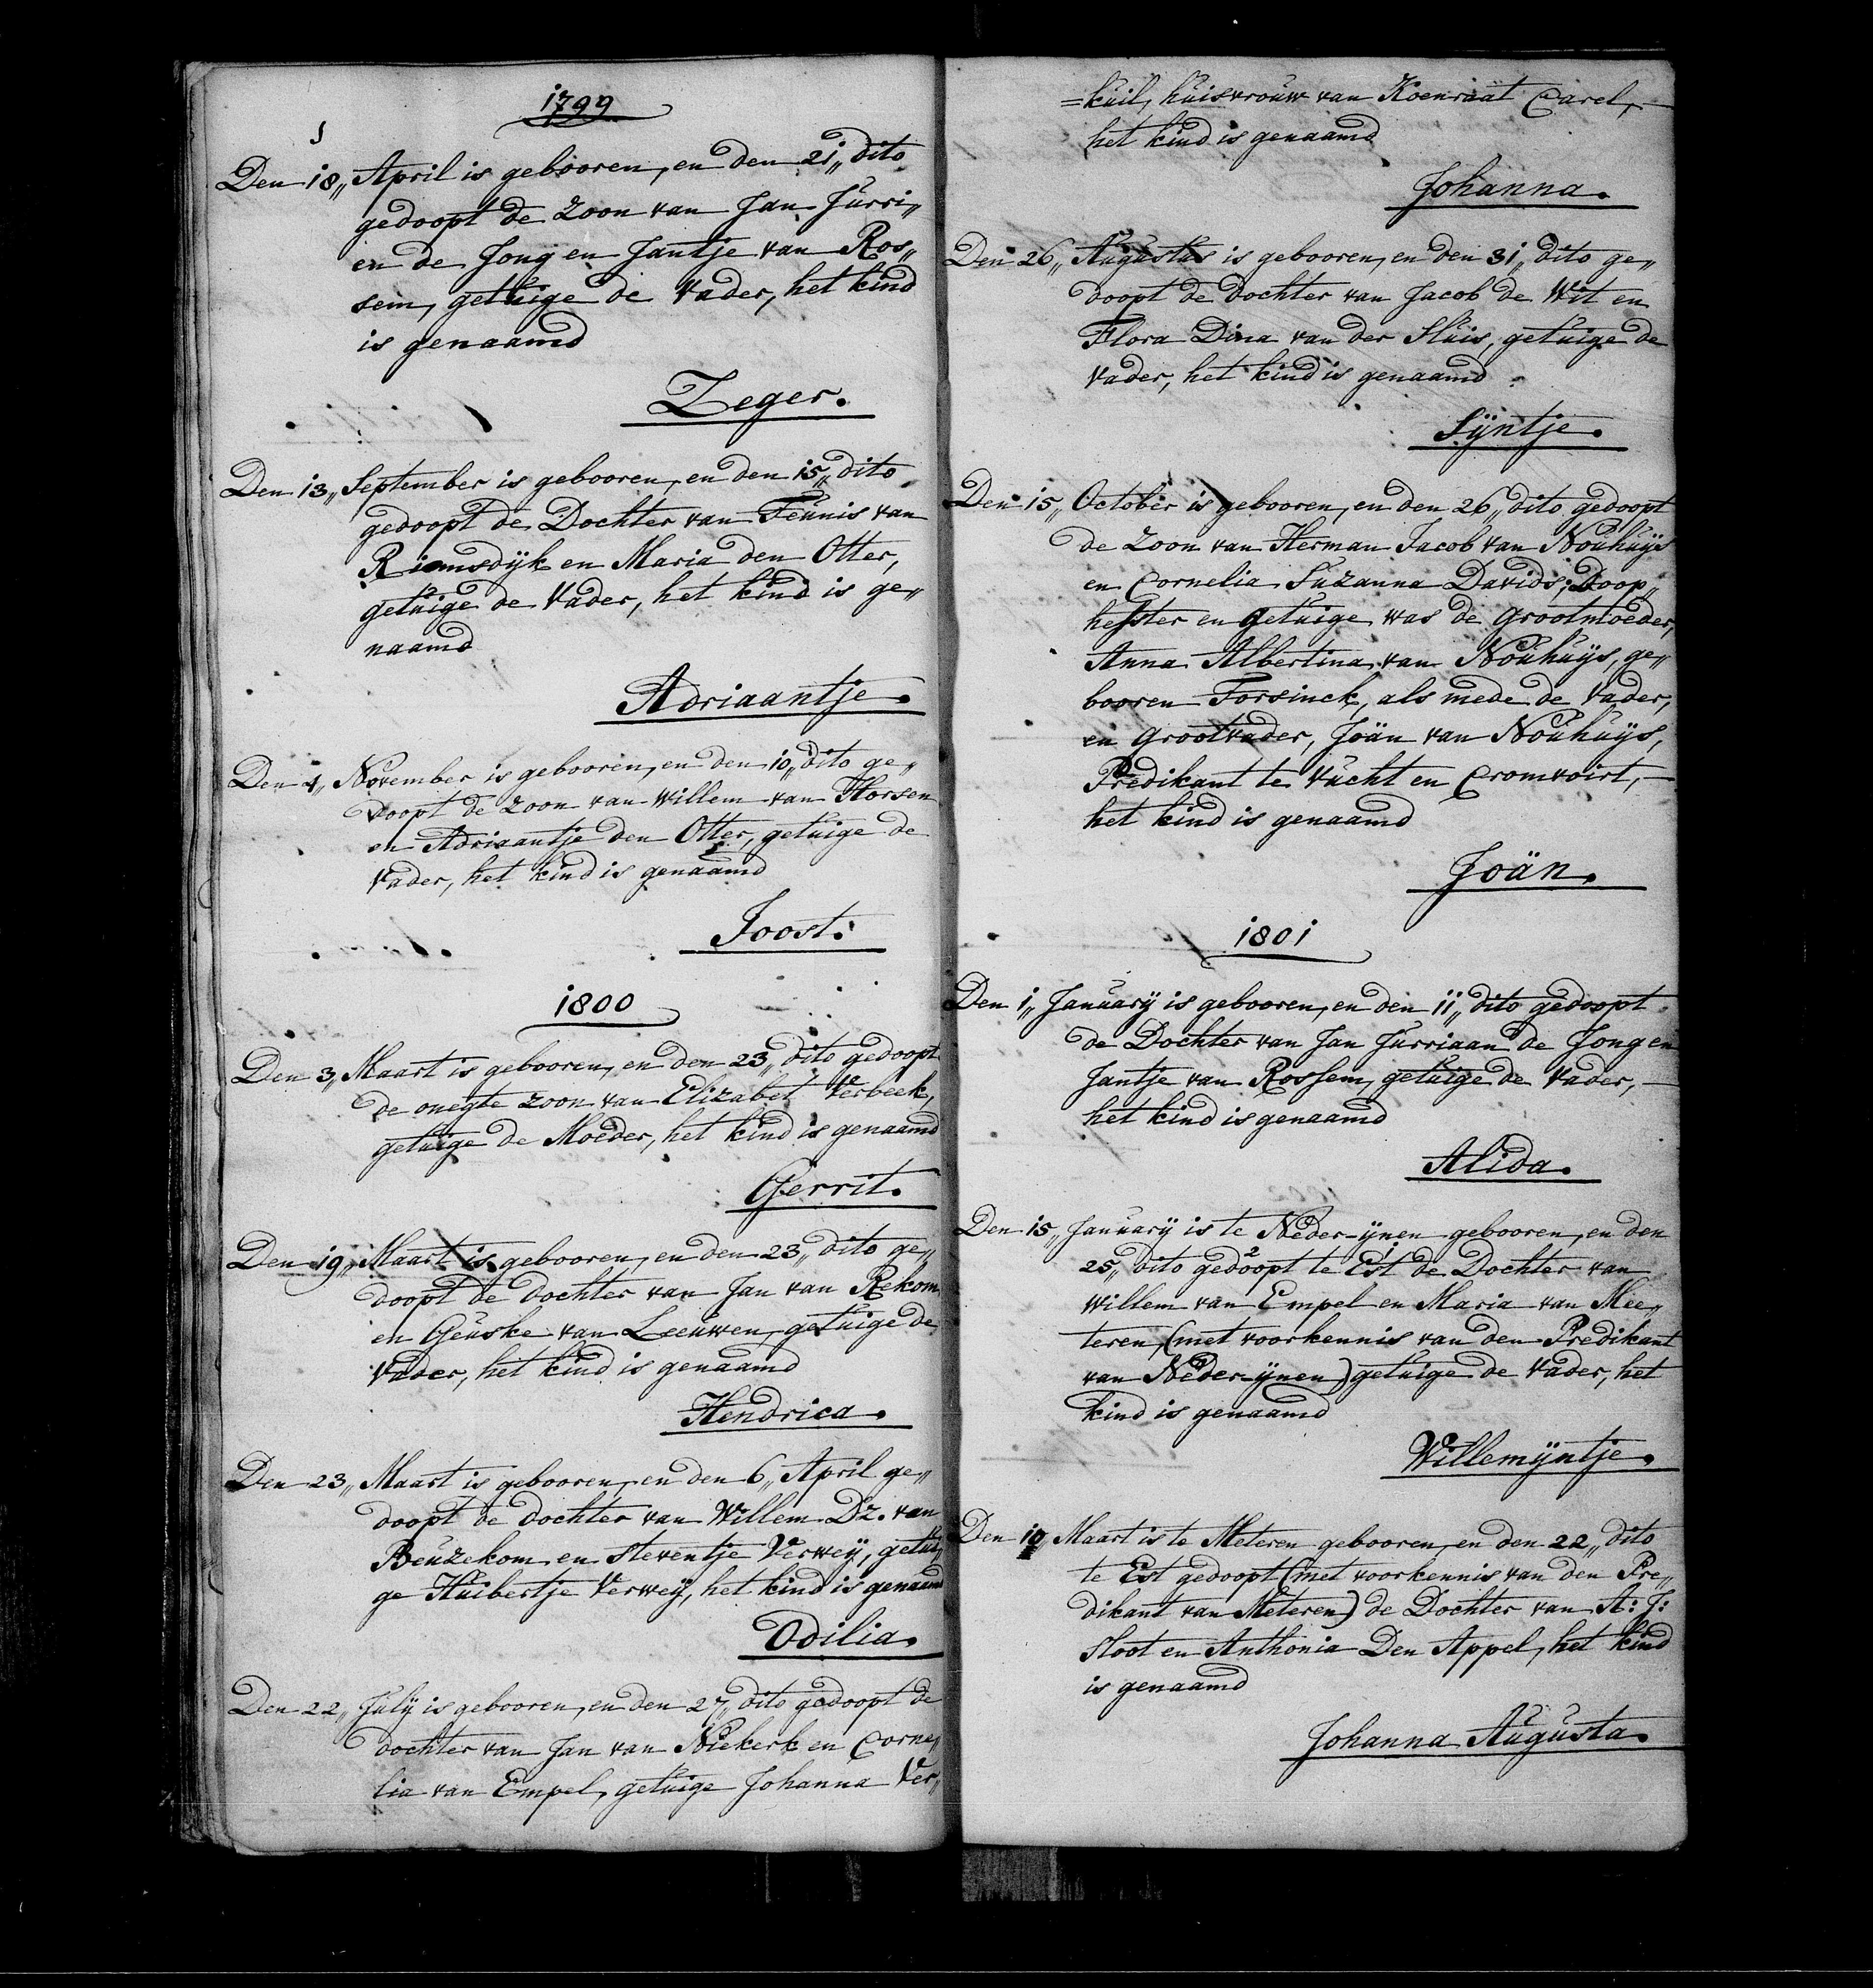 1799
Den 18„ April is gebooren, en den 21„ dito
gedoopt de Zoon van Jan Jurri„
en de Jong en Jantje van Ros„
sem, getuige de Vader, het kind
is genaamd
Zeger.
Den 13„ September is gebooren, en den 15„ dito
gedoopt de Dochter van Teunis van
Riemsdÿk en Maria den Otter,
getuige de Vader, het kind is ge„
naamd
Adriaantje.
Den 4„ November is gebooren, en den 10„ dito ge„
doopt de Zoon van Willem van Horsen
en Adriaantje den Otter, getuige de
Vader, het kind is genaamd
Joost.
1800
Den 3„ Maart is gebooren, en den 23„ dito gedoopt
de onegte zoon van Elizabet Verbeek,
getuige de Moeder, het kind is genaamd
Gerrit.
Den 19„ Maart is gebooren, en den 23„ dito ge„
doopt de dochter van Jan van Rekom
en Geuske van Leeuwen, getuige de
Vader, het kind is genaamd
Hendrica.
Den 23„ Maart is gebooren, en den 6„ April ge„
doopt de dochter van Willem Dz. van
Beuzekom en Steventje Verweÿ, getui„
ge Huibertje Verweÿ, het kind is genaamd
Odilia.
Den 22„ Julÿ is gebooren, en den 27„ dito gedoopt de
dochter van Jan van Niekerk en Corne„
lia van Empel, getuige Johanna Ver„
=kuil, huisvrouw van Koenraat Carel,
het kind is genaamd
Johanna.
Den 26„ Augustus is gebooren, en den 31„ dito ge„
doopt de dochter van Jacob de Wit en
Flora Dina van der Sluis, getuige de
Vader, het kind is genaamd
Sÿntje.
Den 15„ October is gebooren, en den 26„ dito gedoopt
de Zoon van Herman Jacob van Nouhuÿs
en Cornelia Suzanna Davids; Doop„
hefster en getuige was de Grootmoeder,
Anna Albertina van Nouhuÿs, ge„
booren Forsinck, als mede de Vader,
en Grootvader, Joän van Nouhuÿs,
Predikant te Vucht en Cromvoirt,
het kind is genaamd
Joän.
1801
Den 1„ Januarÿ is gebooren, en den 11„ dito gedoopt
de Dochter van Jan Jurriaan de Jong en
Jantje van Rossem, getuige de Vader,
het kind is genaamd
Alida.
Den 15„ Januarÿ is te Neder-ÿnen gebooren, en den
25„ dito gedoopt te Est de Dochter van
Willem van Empel en Maria van Mee„
teren, (met voorkennis van den Predikant
van Neder-ÿnen) getuige de Vader, het
kind is genaamd
Willemÿntje.
Den 10„ Maart is te Meteren gebooren, en den 22„ dito
te Est gedoopt (met voorkennis van den Pre„
dikant van Meteren) de Dochter van A: J:
Sloot en Anthonia Den Appel, het kind
is genaamd
Johanna Augusta.